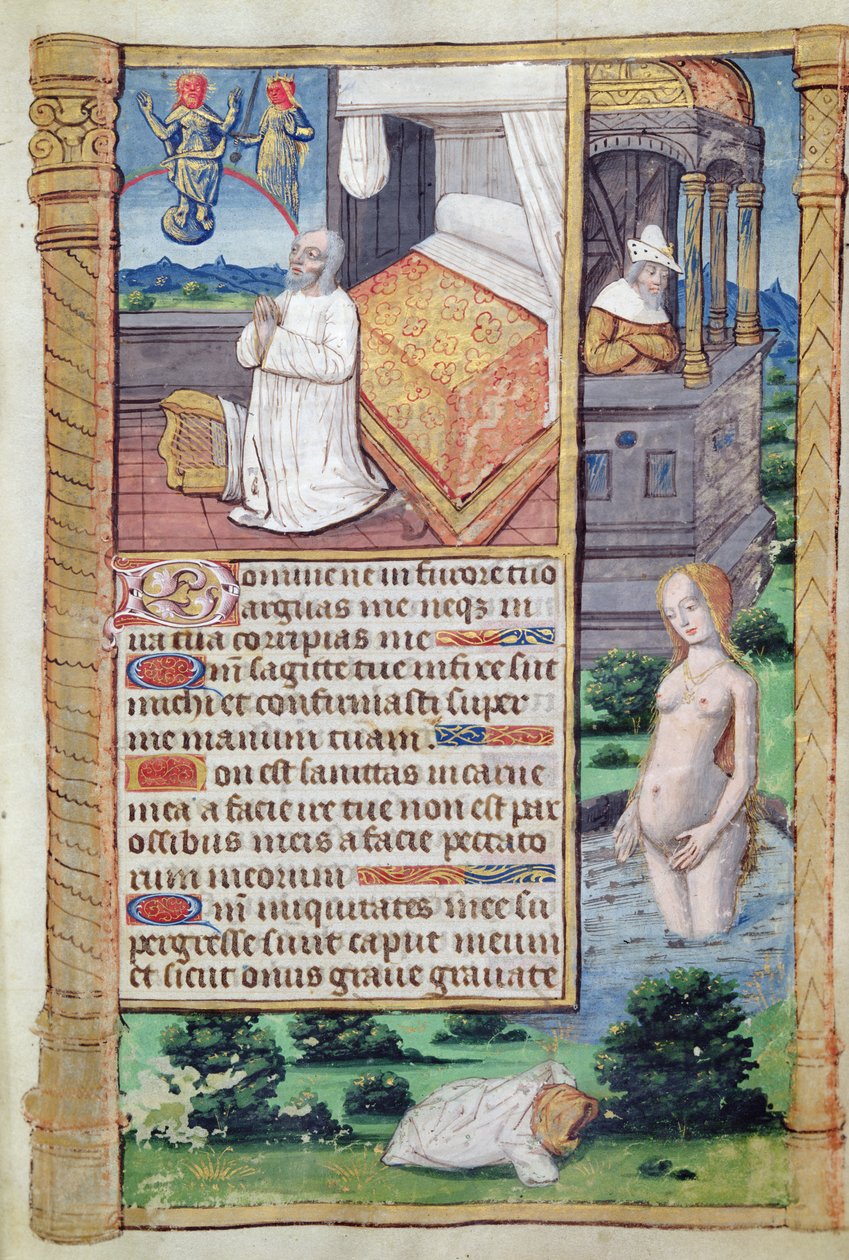 Domine ne in furore tuo
arguas me neqz in
ira tua corripias me
Qm sagitte tue infixe sut
michi et confirmasti super
me manum tuam.
Non est sanitas in carne
mea a facie ire tue non est pax
ossibus meis a facie peccato
rum meorum
Qm iniquitates mee su
pergresse sunt caput meum
et sicut onus graue grauate